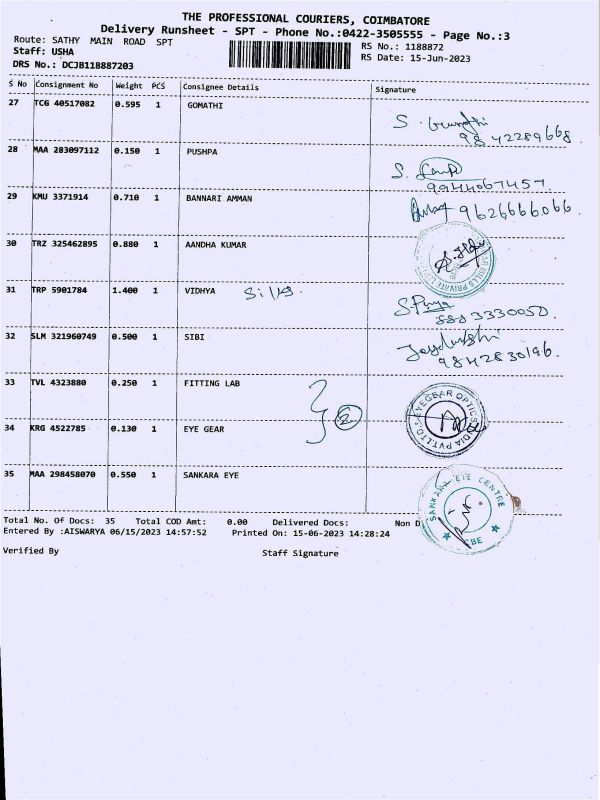 THE PROFESSIONAL COURIERS, COIMBATORE
Delivery Runsheet - SPT - Phone No.:0422-3505555 - Page No.:3
Route: SATHY MAIN ROAD SPT
RS No.: 1188872
Staff: USHA
RS Date: 15-Jun-2023
DRS No.: DCJB118887203
S No Consignment No Weight PCS Consignee Details Signature
27 TCG 40517082 0.595 1 GOMATHI
S. Gomathi
9842289668
28 MAA 283097112 0.150 1 PUSHPA
S.
9944067457
29 KMU 3371914 0.710 1 BANNARI AMMAN
9626666066
30 TRZ 325462895 0.880 1 AANDHA KUMAR
31 TRP 5901784 1.400 1 VIDHYA Silks
S. Priya
8883330050
32 SLM 321960749 0.500 1 SIBI
9842830196
33 TVL 4323880 0.250 1 FITTING LAB
2
EYEGEAR OPTICS INDIA PVT.LTD.
34 KRG 4522785 0.130 1 EYE GEAR
35 MAA 298458070 0.550 1 SANKARA EYE
SANKARA EYE CENTRE
CBE
Total No. Of Docs: 35 Total COD Amt: 0.00 Delivered Docs: Non D
Entered By :AISWARYA 06/15/2023 14:57:52 Printed On: 15-06-2023 14:28:24
Verified By Staff Signature